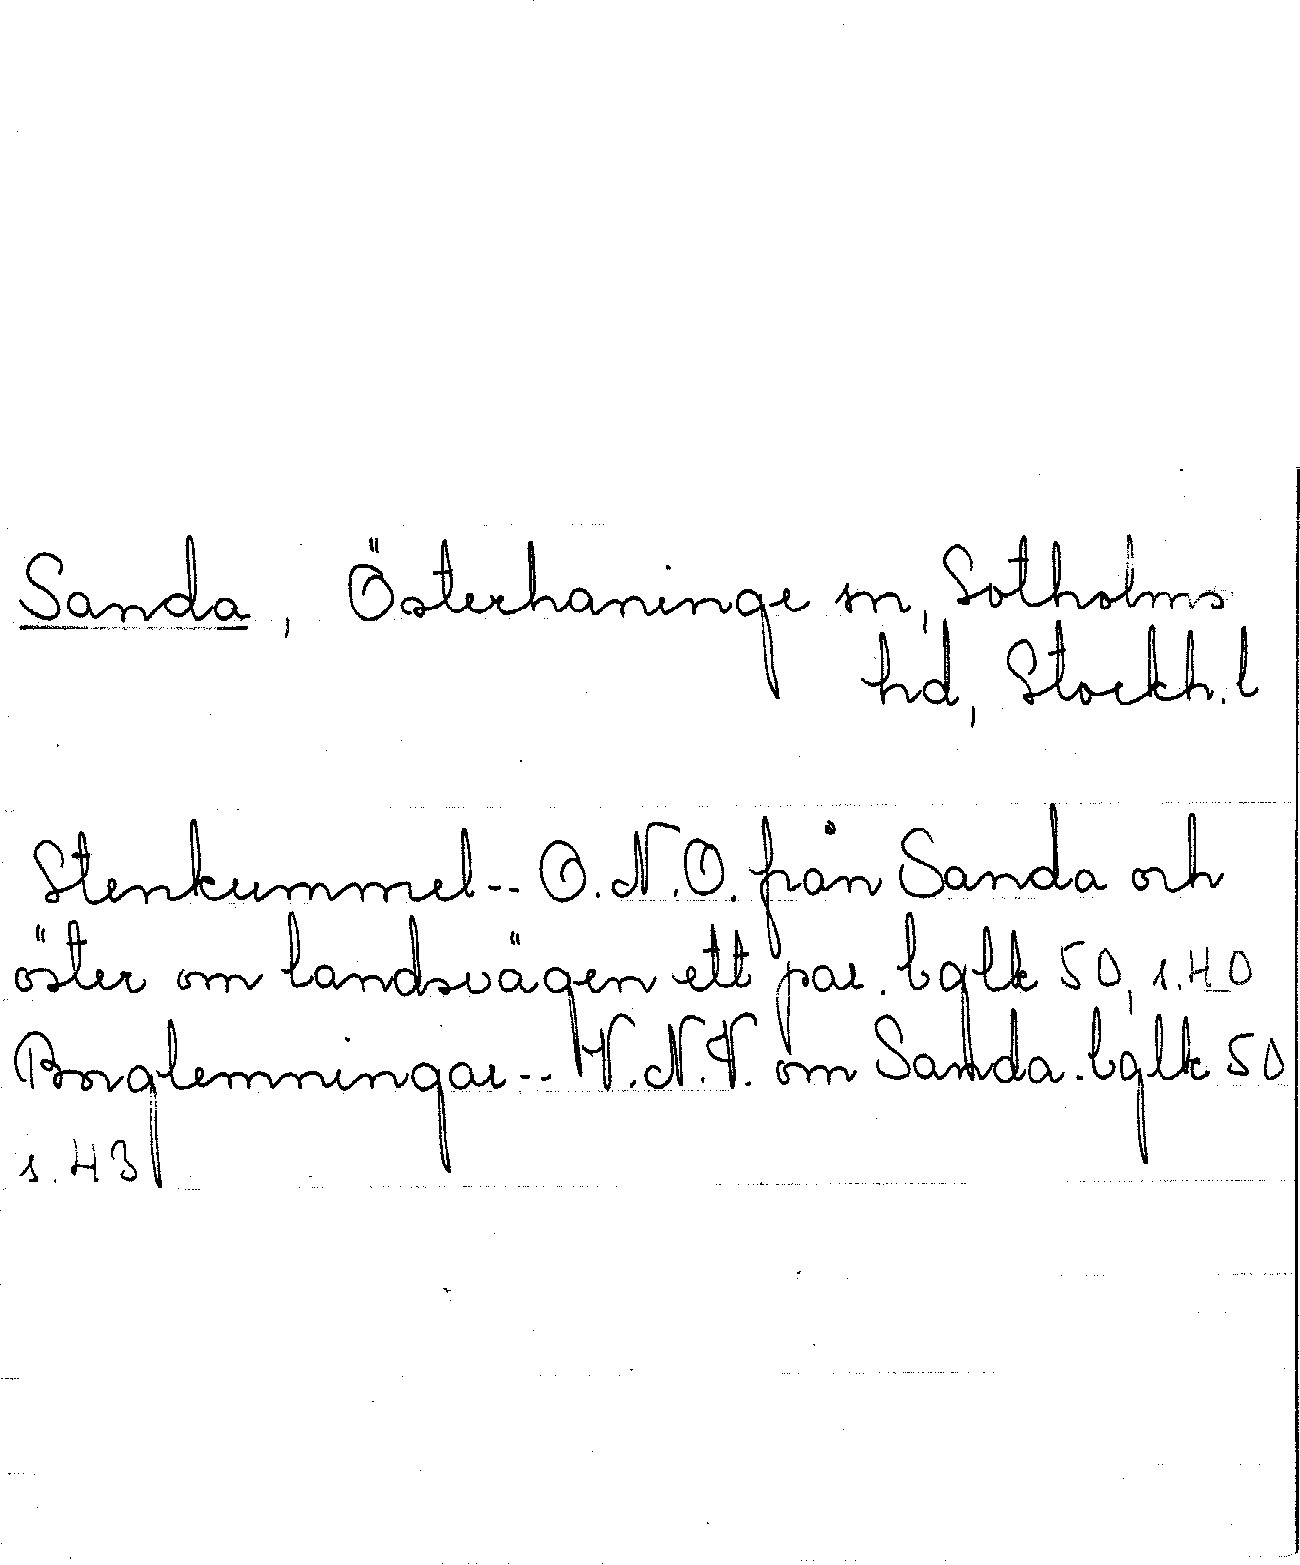 Sanda, Österhaninge sn, Sotholms
hd, Stockh. l
Stenkummel-- O.N.O. från Sanda och
öster om landsvägen ett par. bglk 50, s. 40
Borglemningar-- V.N.V. om Sanda. bglk 50
s. 43